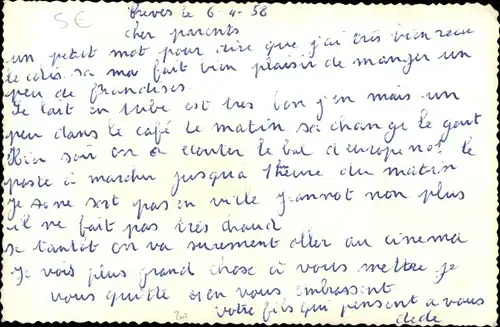 5€
Treves le 6-4-58
cher parents
un petit mot pour dire que j'ai très bien recu
le colis sa ma fait bien plaisir de manger un
peu de friandises
le lait en tube est tres bon j'en mais un
peu dans le café le matin sa change le gout
Hier soir on a ecouter le bal d'europe no1 le
poste a marcher jusqua 1 heure du matin
Je ne sort pas en ville jeannot non plus
il ne fait pas très chaud
se tantôt on va surement aller au cinema
Je vois plus grand chose à vous mettre je
vous quitte en vous embrassent
votre fils qui pensent a vous
dede